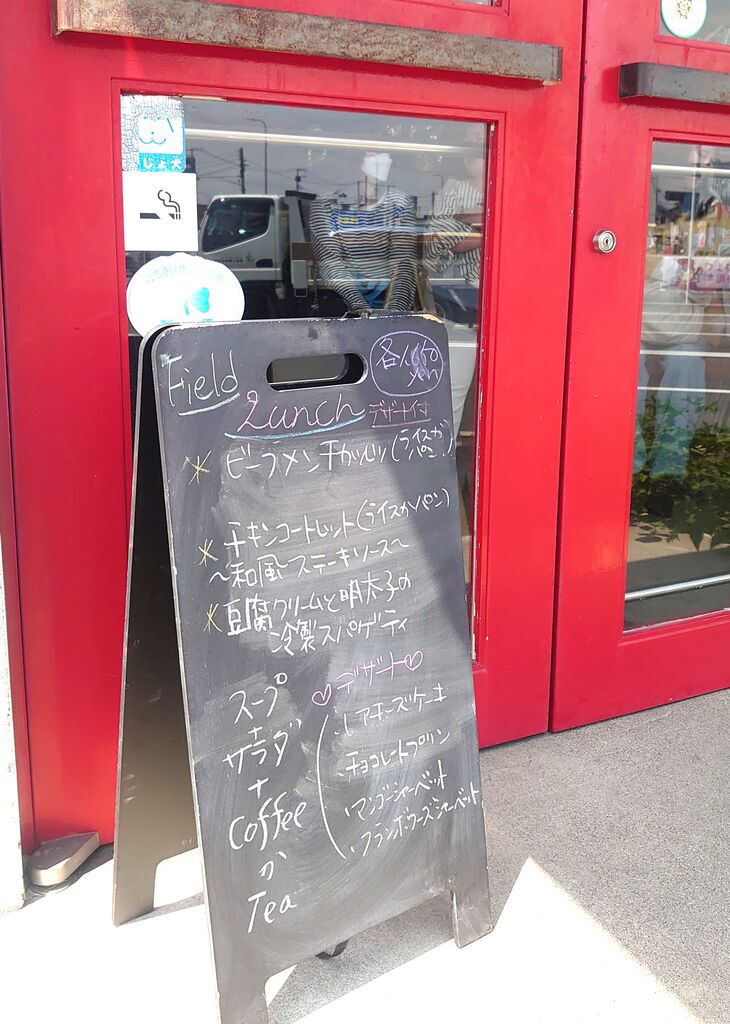 じょ犬
Field
各1,650
yen
Lunch デザート付
＊ ビーフメンチかつレツ(ライスかパン)
＊ チキンコートレット(ライスかパン)
～和風ステーキソース～
＊ 豆腐クリームと明太子の
冷製スパゲティ
スープ
+
サラダ
+
Coffee
か
Tea
♡デザート♡
・レアチーズケーキ
・チョコレートプリン
・マンゴーシャーベット
・フランボワーズシャーベット